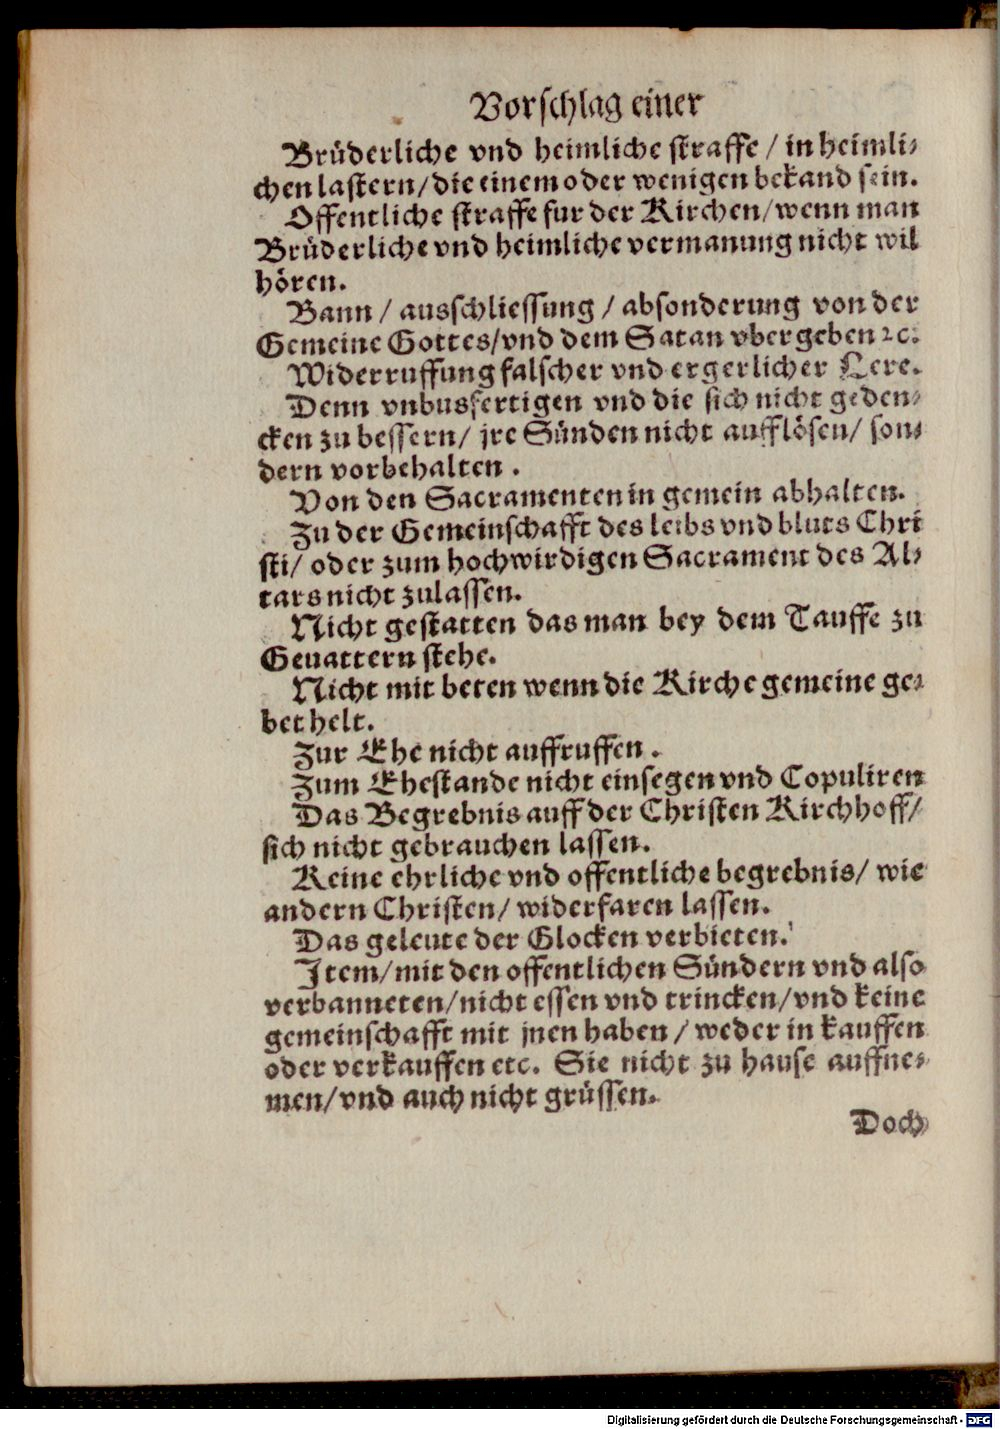 Vorschlag einer
Brüderliche vnd heimliche straffe / in heimli⸗
chen lastern/ die einem oder wenigen bekand sein.
Offentliche straffe fur der Kirchen/ wenn man
Brüderliche vnd heimliche vermanung nicht wil
hören.
Bann / ausschliessung / absonderung von der
Gemeine Gottes/ vnd dem Satan vbergeben ꝛc.
Widerruffung falscher vnd ergerlicher Lere.
Denn vnbusfertigen vnd die sich nicht geden⸗
cken zu bessern/ jre Sünden nicht aufflösen/ son⸗
dern vorbehalten .
Von den Sacramenten in gemein abhalten.
Zu der Gemeinschafft des leibs vnd bluts Chri
sti/ oder zum hochwirdigen Sacrament des Al⸗
tars nicht zulassen.
Nicht gestatten das man bey dem Tauffe zu
Geuattern stehe.
Nicht mit beten wenn die Kirche gemeine ge⸗
bet helt.
Zur Ehe nicht auffruffen .
Zum Ehestande nicht einsegen vnd Copuliren
Das Begrebnis auff der Christen Kirchhoff/
sich nicht gebrauchen lassen.
Keine ehrliche vnd offentliche begrebnis/ wie
andern Christen/ widerfaren lassen.
Das geleute der Glocken verbieten.
Item/ mit den offentlichen Sündern vnd also
verbanneten/ nicht essen vnd trincken/ vnd keine
gemeinschafft mit jnen haben / weder in kauffen
oder verkauffen etc. Sie nicht zu hause auffne⸗
men/ vnd auch nicht grüssen.
Doch
Digitalisierung gefördert durch die Deutsche Forschungsgemeinschaft - DFG